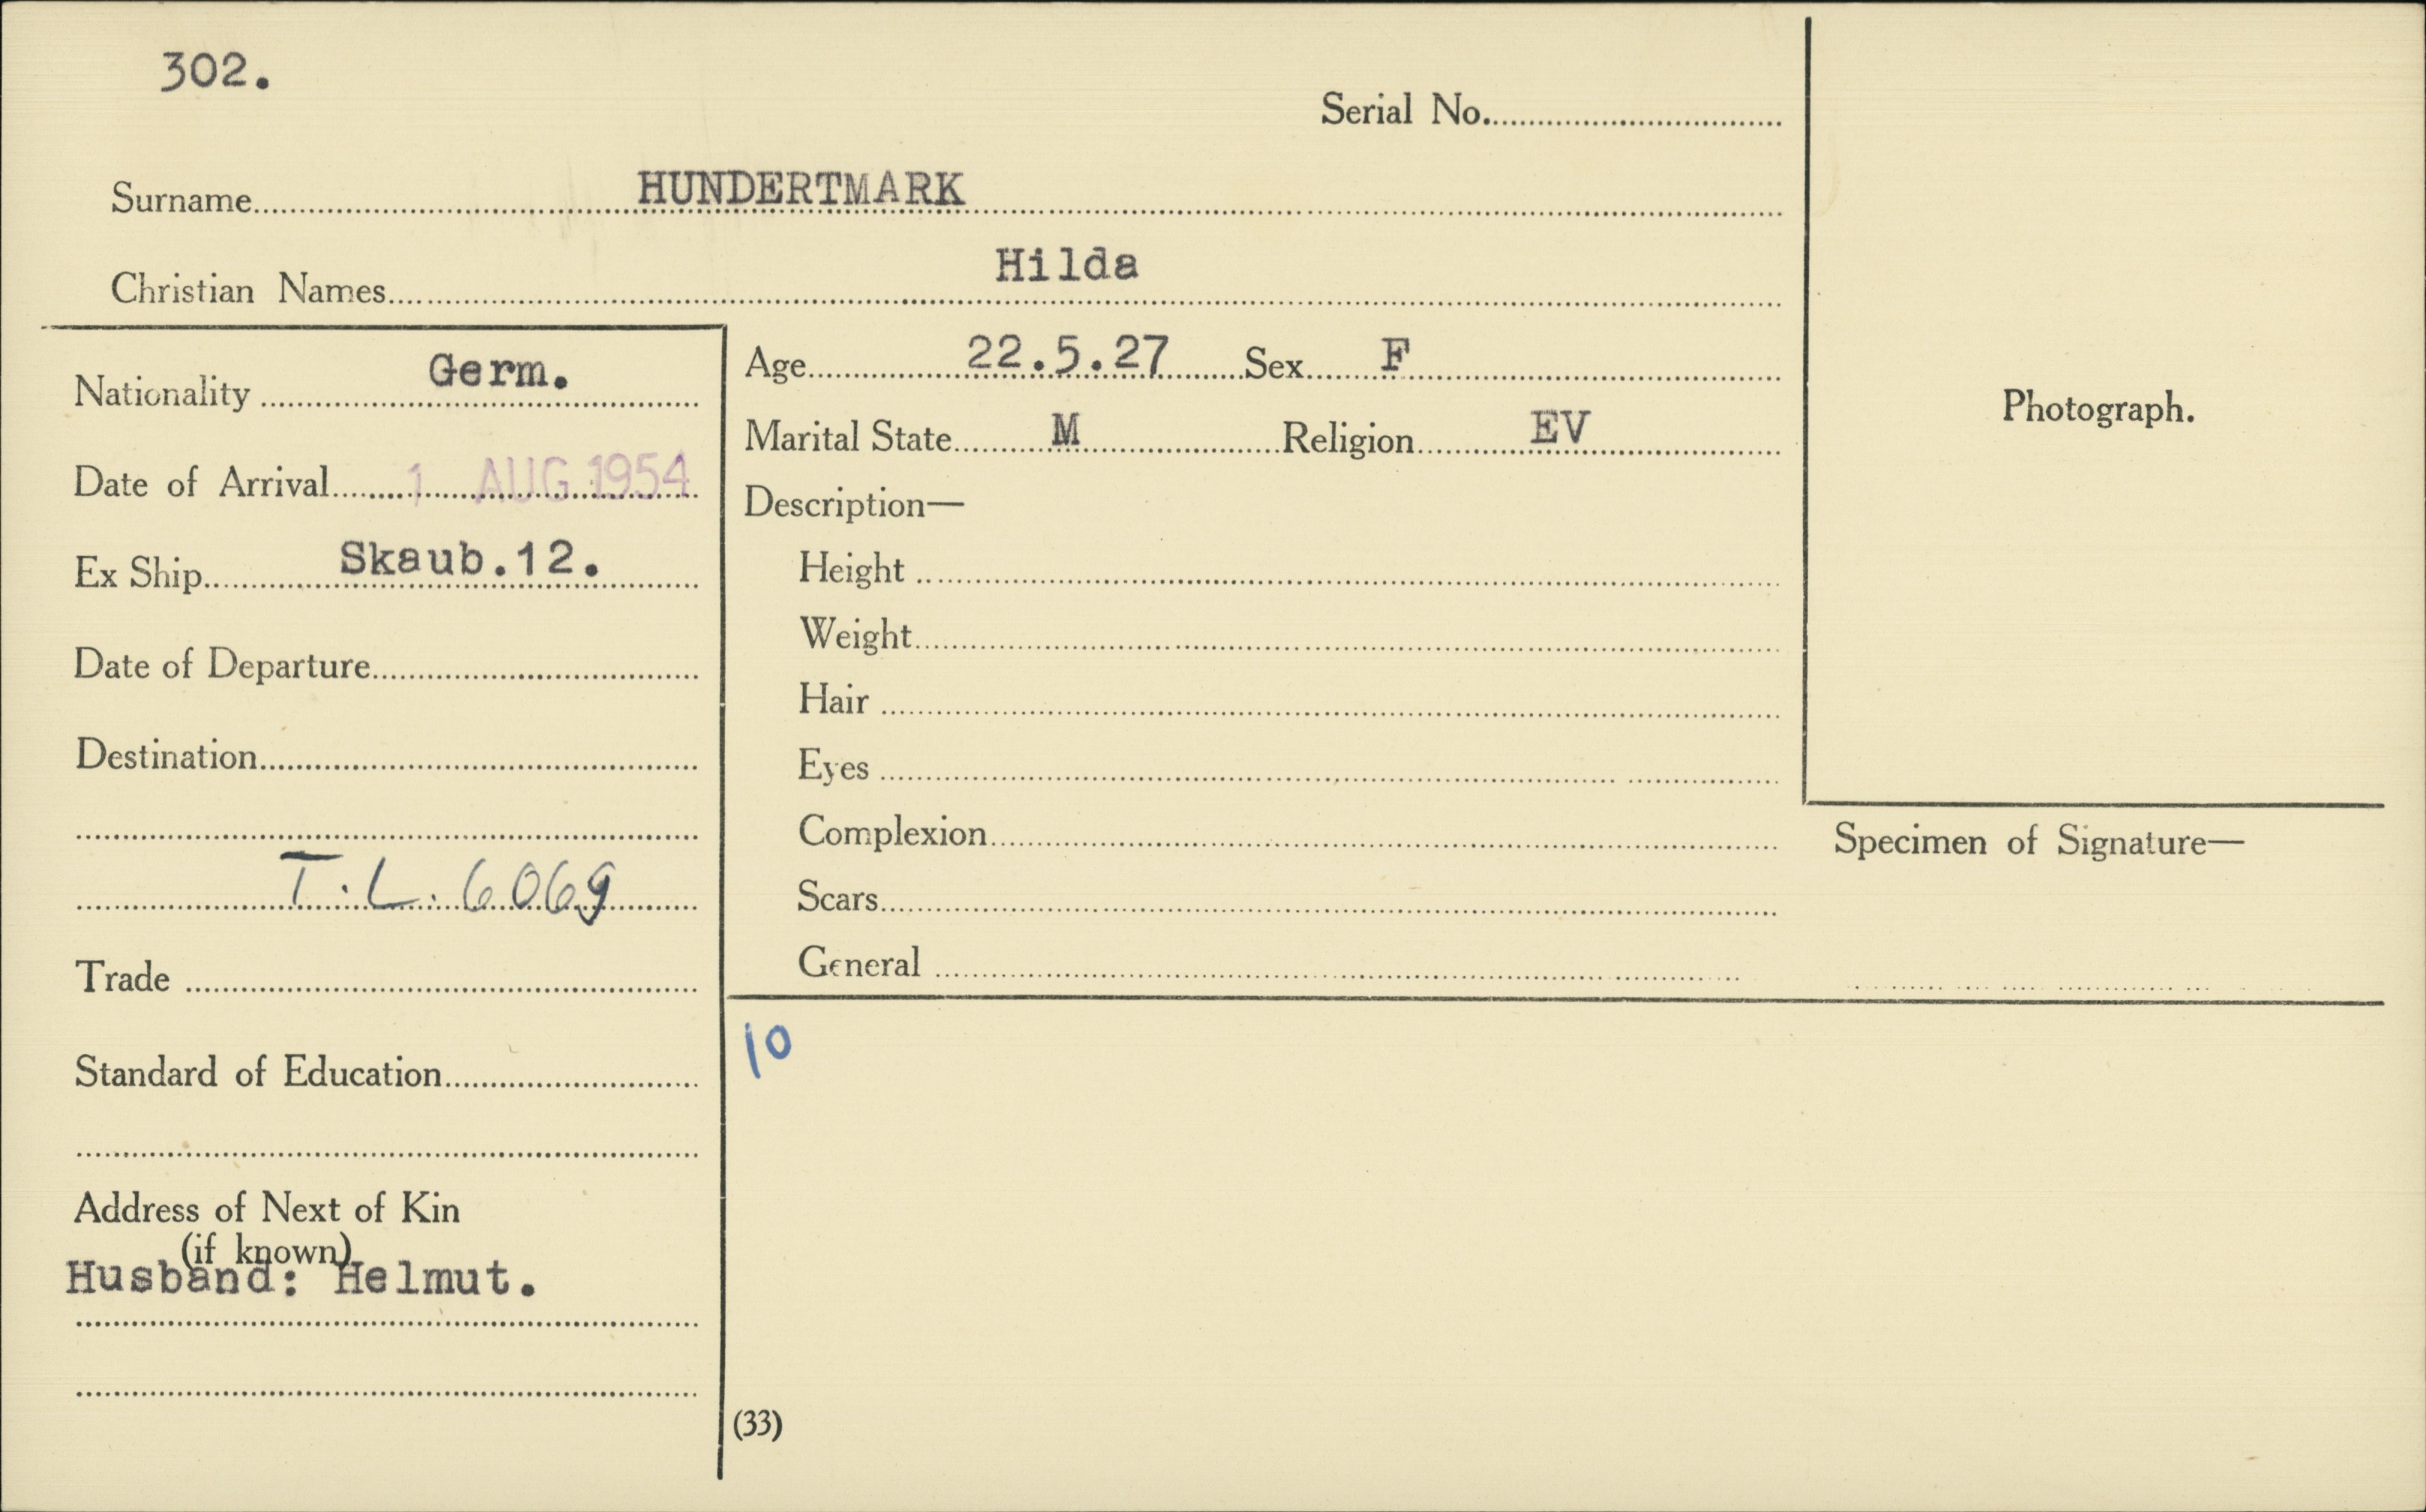 302.
Serial No.
Surname HUNDERTMARK
Christian Names Hilda
Nationality Germ.
Date of Arrival 1 AUG 1954
Ex Ship Skaub.12.
Date of Departure
Destination
T.L. 6069
Trade
Standard of Education
Address of Next of Kin
(if known)
Husband: Helmut.
Age 22.5.27 Sex F
Marital State M Religion EV
Description—
Height
Weight
Hair
Eyes
Complexion
Scars
General
10
(33)
Photograph.
Specimen of Signature—